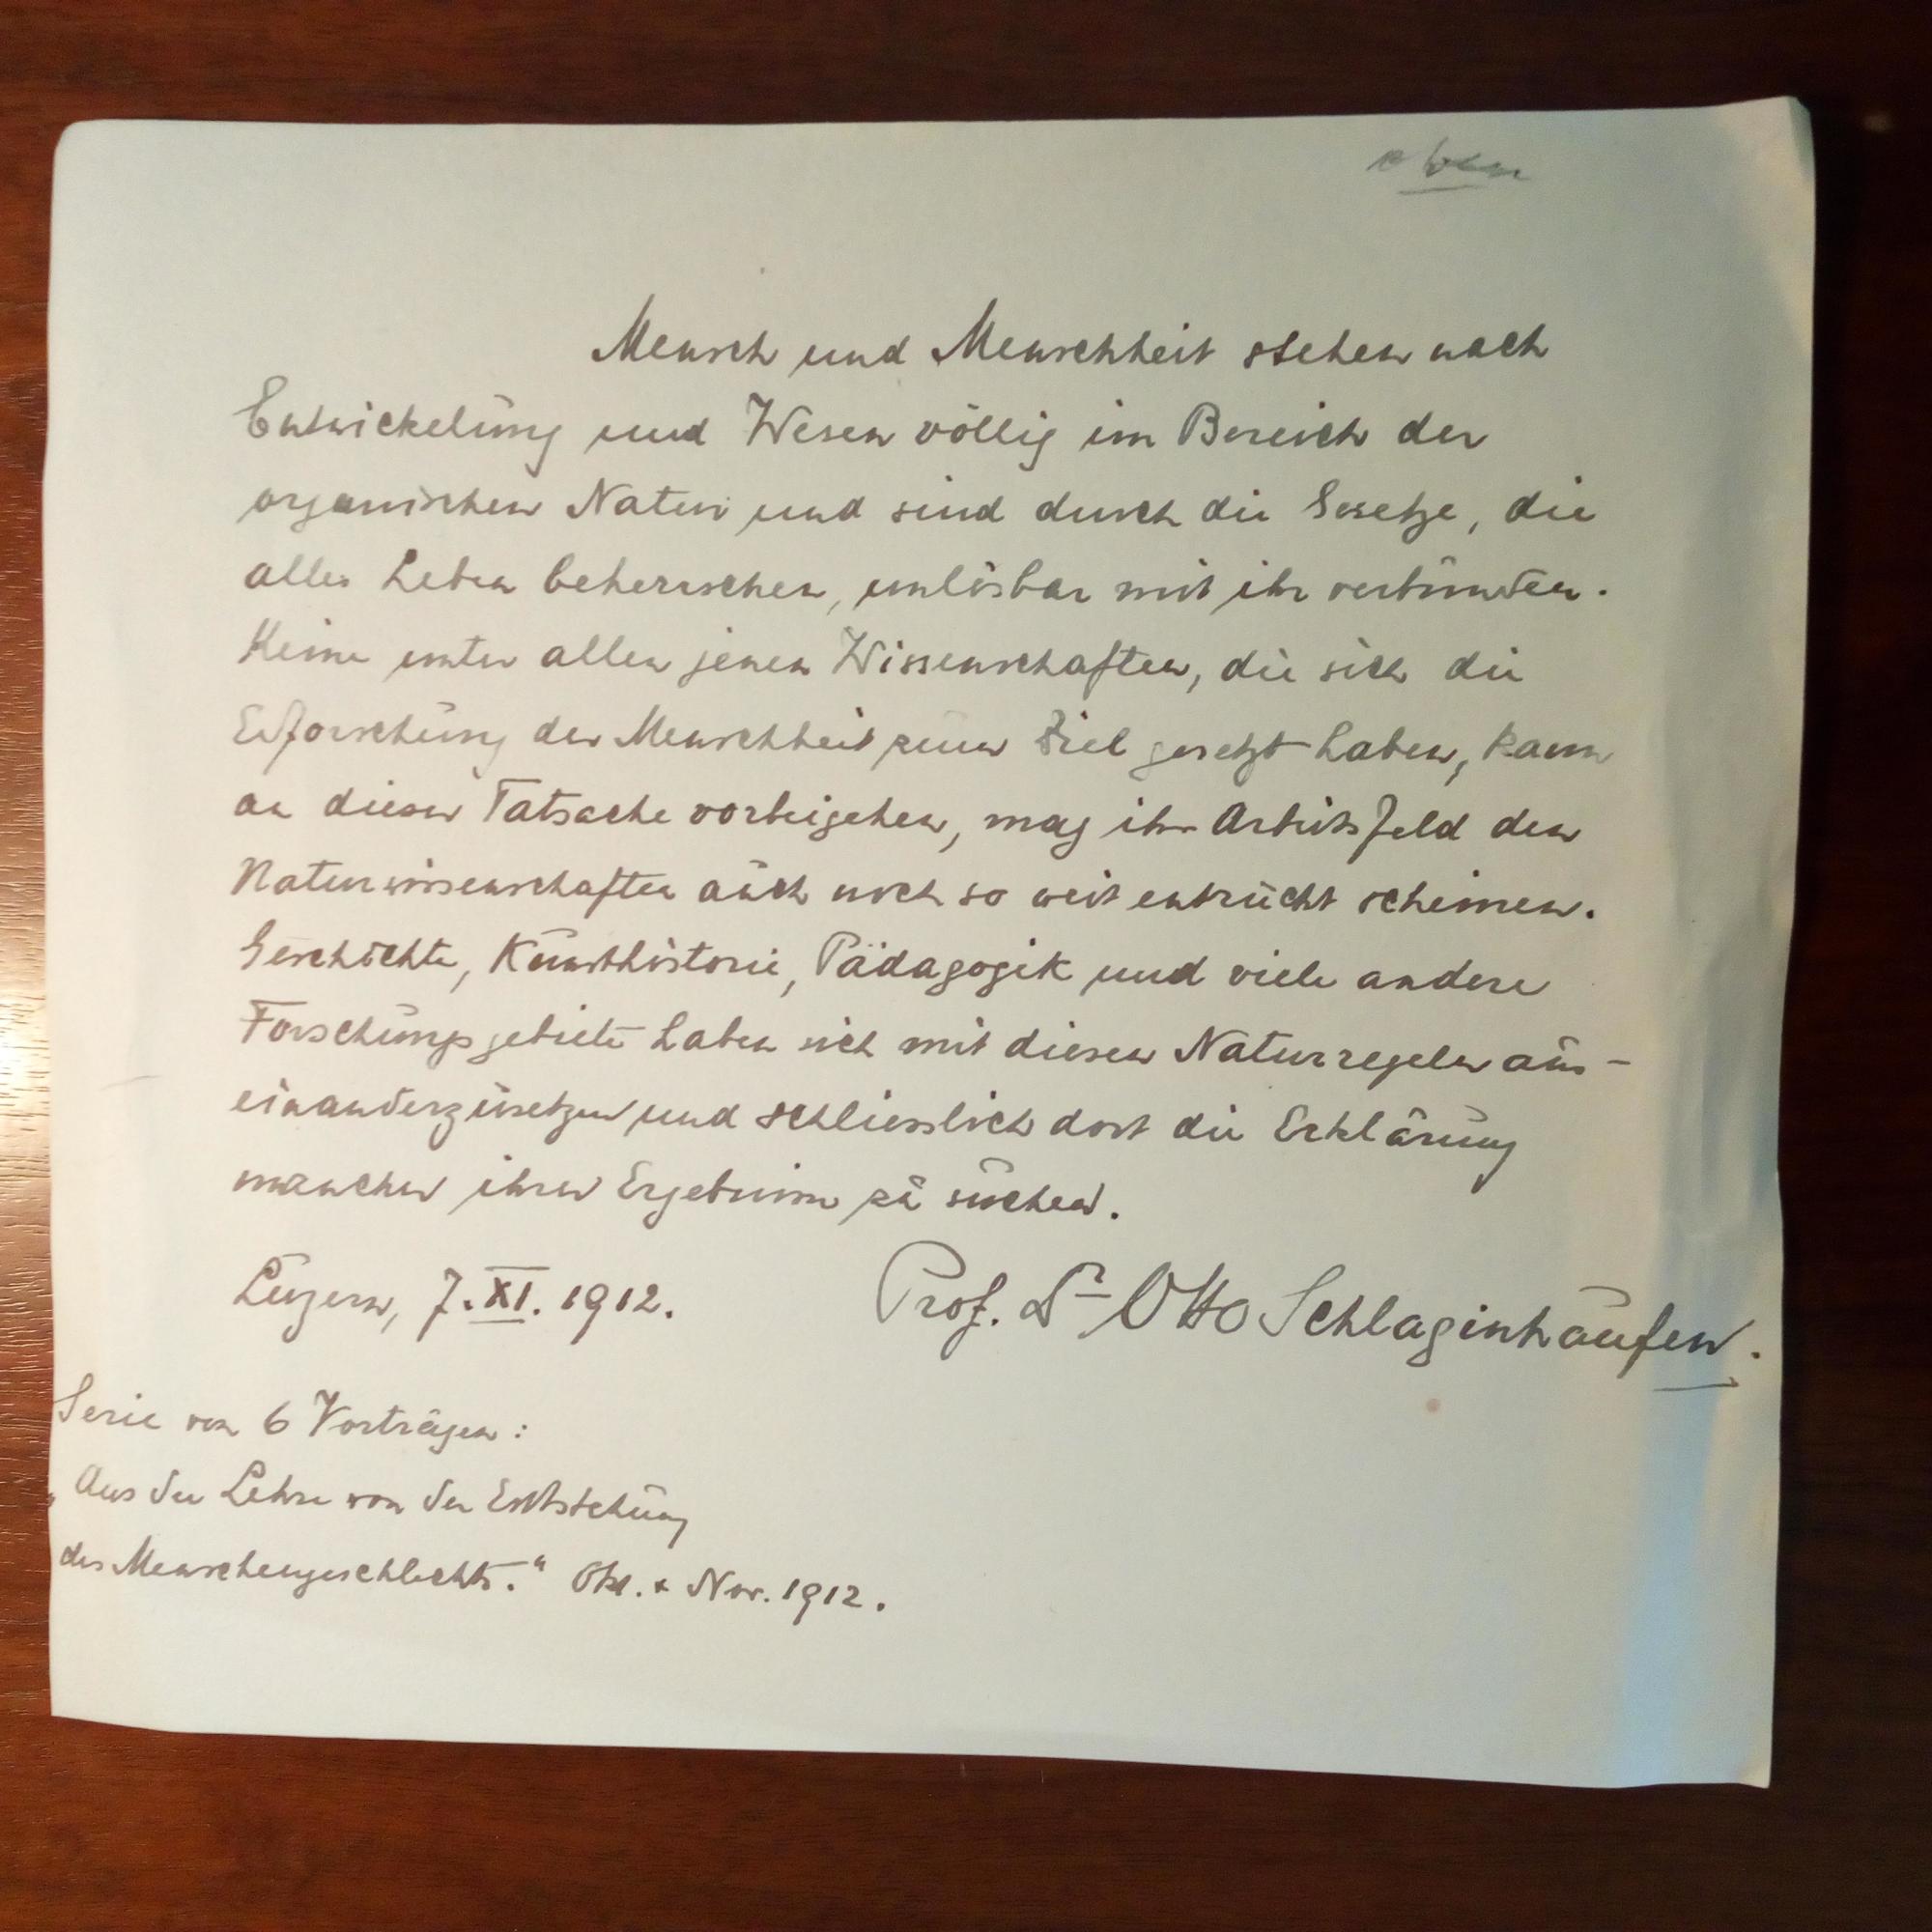 oben
Mensch und Menschheit stehen nach
Entwickelung und Wesen völlig im Bereich der
organischen Natur und sind durch die Gesetze, die
alles Leben beherrschen, unlösbar mit ihr verbunden.
Keine unter allen jenen Wissenschaften, die sich die
Erforschung der Menschheit zum Ziel gesetzt haben, kann
an dieser Tatsache vorbeigehen, mag ihr Arbeitsfeld den
Naturwissenschaften auch noch so weit entrückt scheinen.
Geschichte, Kunsthistorie, Pädagogik und viele andere
Forschungsgebiete haben sich mit diesen Naturregeln aus-
einanderzusetzen und schliesslich dort die Erklärung
mancher ihrer Ergebnisse zu suchen.
Luzern, 7. XI. 1912. Prof. Dr Otto Schlaginhaufen.
Serie von 6 Vorträgen:
„Aus der Lehre von der Entstehung
des Menschengeschlechts.“ Okt. & Nov. 1912.